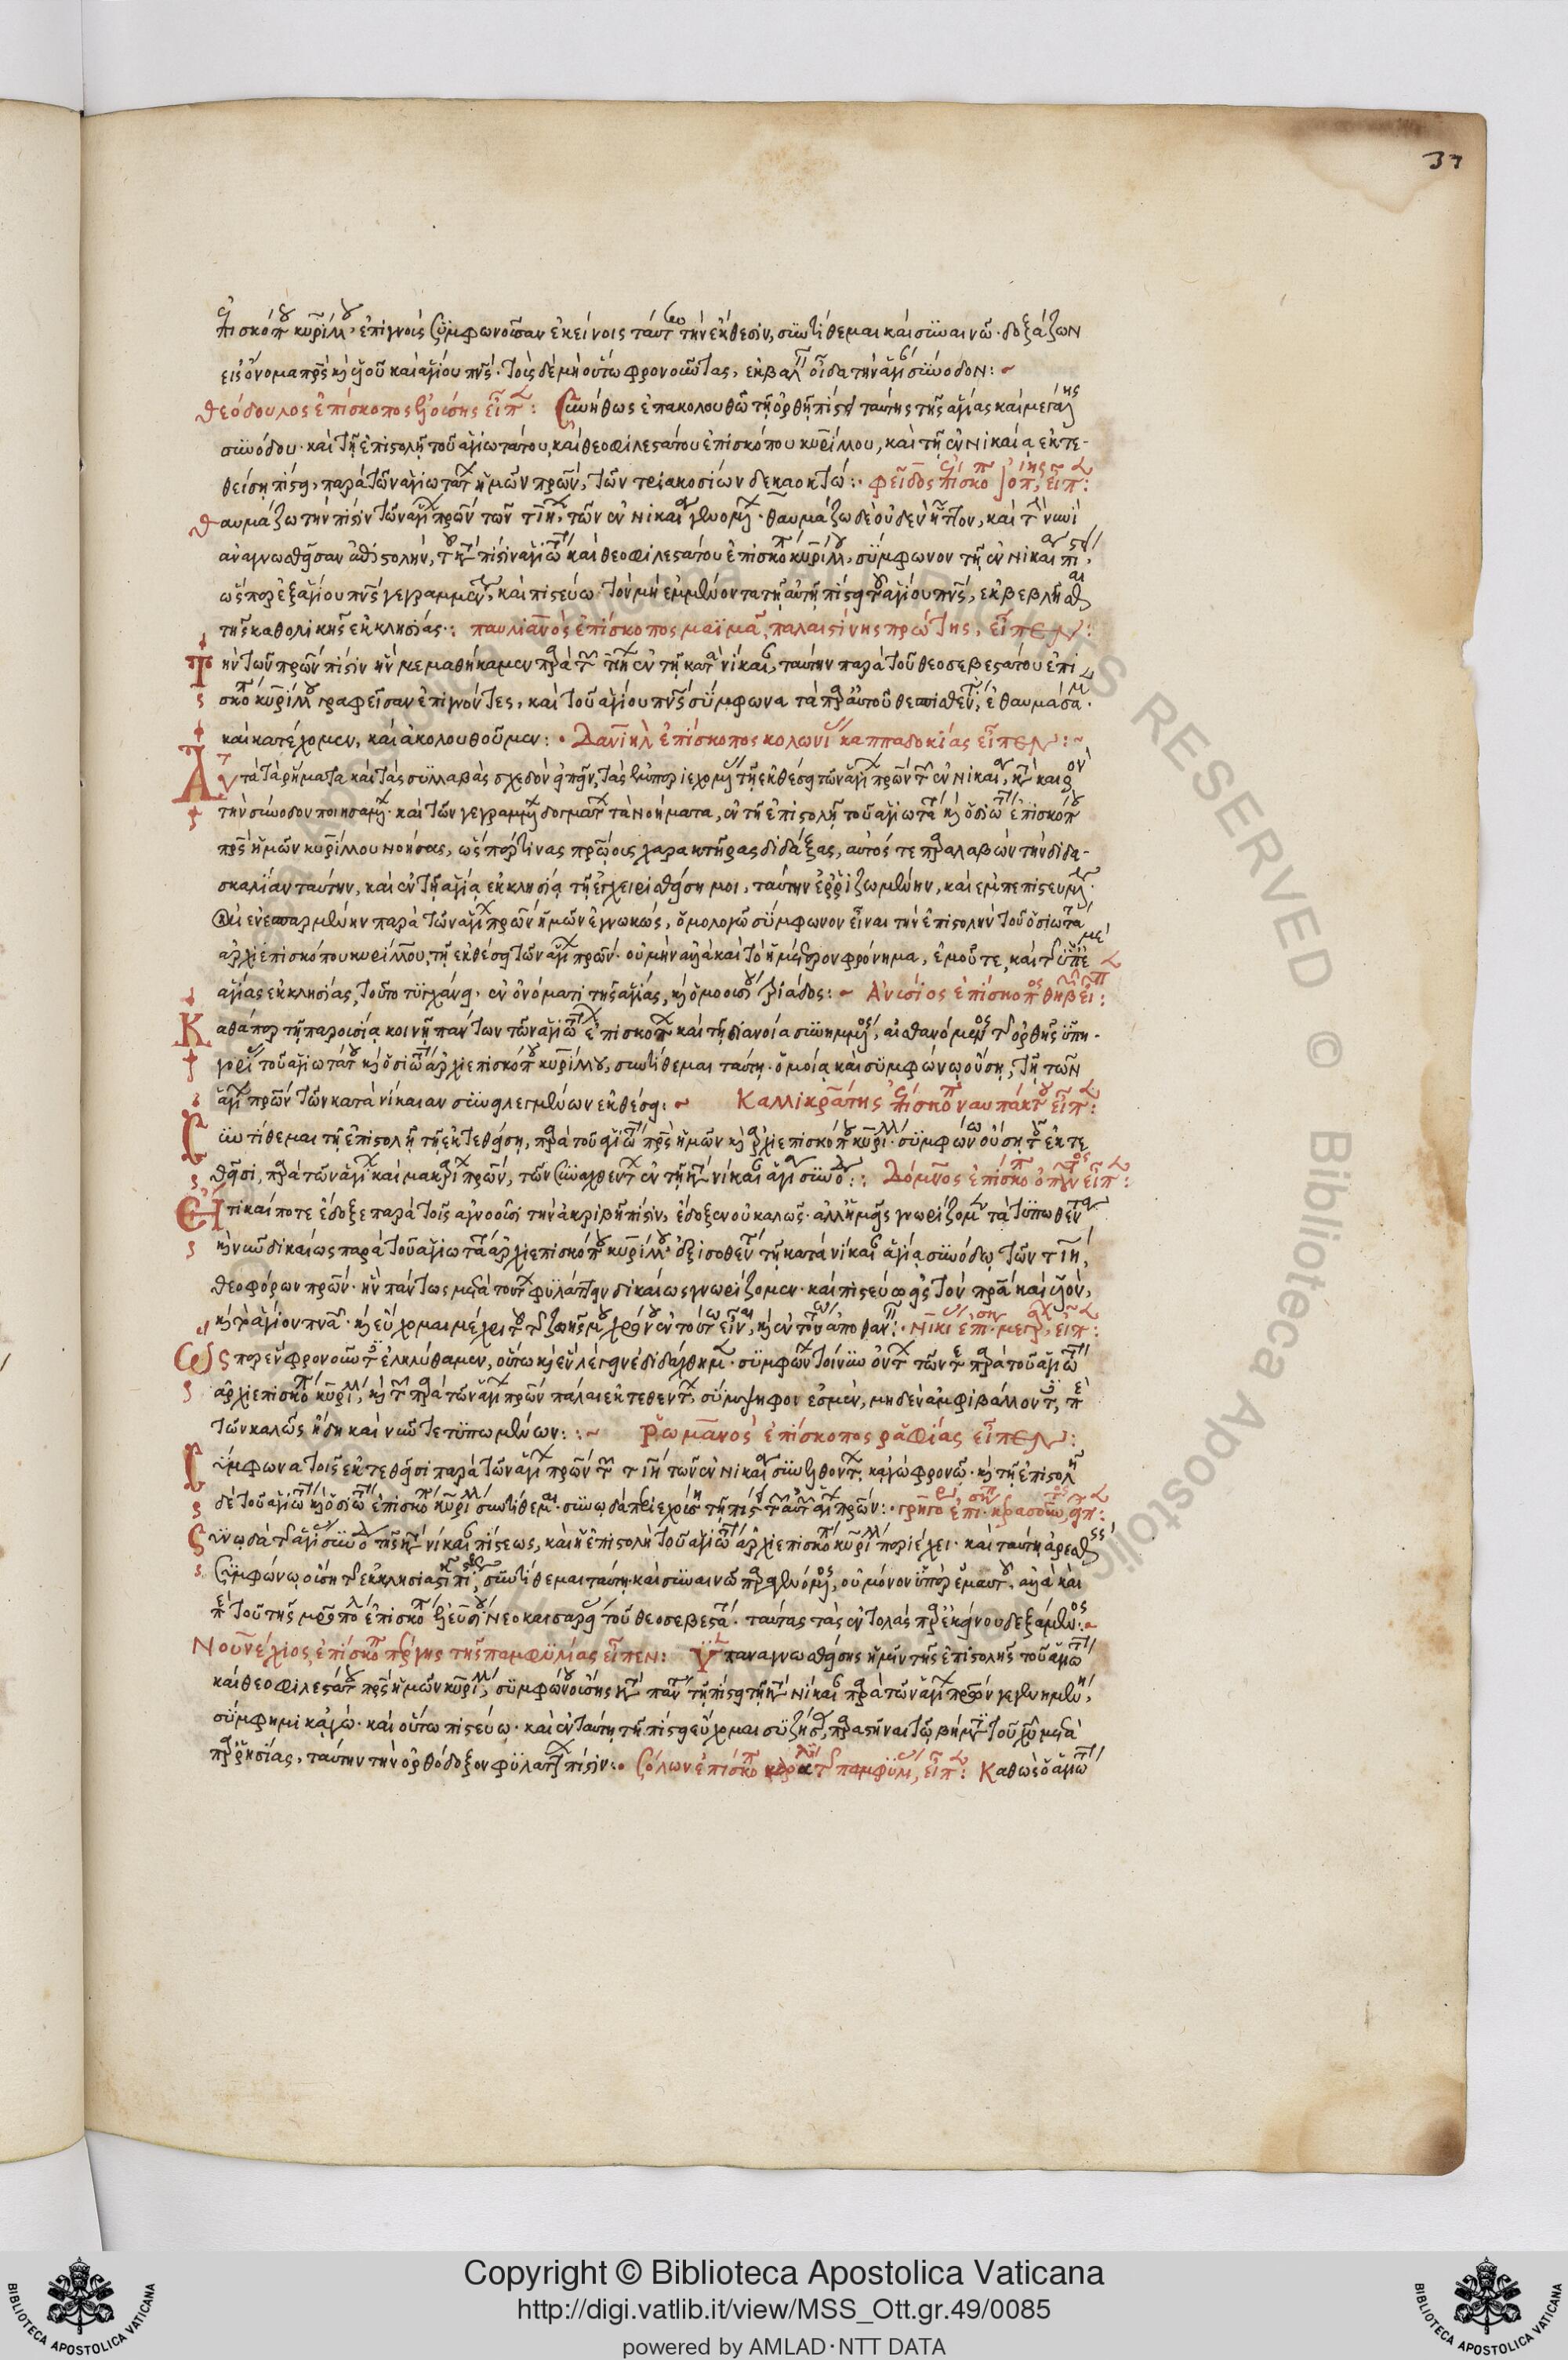 37
ἐπισκόπου κυρίλλου, ἐπιγνοὺς σύμφωνον οὖσαν ἐκείνοις ταύτην τὴν ἔκθεσιν, συντίθεμαι καὶ συναινῶ· δοξάζων
εἰς ὄνομα πρς κὶ υἱοῦ καὶ ἁγίου πνς· τοὺς δὲ μὴ οὕτω φρονοῦντας, ἐκβάλλει οἶδα τὴν ἁγίαν σύνοδον:
θεόδουλος ἐπίσκοπος ἐλούσης εἶπεν: Συνήθως ἐπακολουθῶ τῇ ὀρθῇ πίστει ταύτης τῆς ἁγίας καὶ μεγάλης
συνόδου· καὶ τῇ ἐπιστολῇ τοῦ ἁγιωτάτου, καὶ θεοφιλεστάτου ἐπισκόπου κυρίλλου, καὶ τῇ ἐν νικαίᾳ ἐκτε-
θείσῃ πίστει, παρὰ τῶν ἁγιωτάτων ἡμῶν πρων, τῶν τριακοσίων δεκαοκτώ: φεῖδος ἐπίσκοπος ἰόππης εἶπεν:
θαυμάζω τὴν πίστιν τῶν ἁγίων πρων τῶν τιη, τῶν ἐν νικαίᾳ γενομένων· θαυμάζω δὲ οὐδὲν ἧττον, καὶ τὴν νυνὶ
ἀναγνωσθεῖσαν ἐπιστολήν, τοῦ τὴν πίστιν ἁγιωτάτου καὶ θεοφιλεστάτου ἐπισκόπου κυρίλλου, σύμφωνον τῇ ἐν νικαίᾳ πίστει,
ὥσπερ ἐξ ἁγίου πνς γεγραμμένην, καὶ πιστεύω· τὸν μὴ ἐμμένοντα τῇ αὐτῇ πίστει τοῦ ἁγίου πνς, ἐκβεβλῆσθαι
τῆς καθολικῆς ἐκκλησίας: παυλιανὸς ἐπίσκοπος μαϊουμᾶ, παλαιστίνης πρώτης, εἶπεν:
Τὴν τῶν πρων πίστιν ἣν μεμαθήκαμεν παρὰ τῶν τιη ἐν τῇ κατὰ νίκαιαν, ταύτην παρὰ τοῦ θεοσεβεστάτου ἐπι
σκόπου κυρίλλου γραφεῖσαν ἐπιγνόντες, καὶ τοῦ ἁγίου πνς σύμφωνα τὰ παρ' αὐτοῦ θεσπισθέντα, ἐθαυμάσαμεν·
καὶ κατέχομεν, καὶ ἀκολουθοῦμεν: Δανιὴλ ἐπίσκοπος κολωνίας καππαδοκίας εἶπεν:
Αὐτὰ τὰ ῥήματα καὶ τὰς συλλαβὰς σχεδὸν εἰπεῖν, τὰς ἐμπεριεχομένας τῇ ἐκθέσει τῶν ἁγίων πρων τῶν ἐν νικαίᾳ, κατὰ καιρὸν
τὴν σύνοδον ποιησαμένων· καὶ τῶν γεγραμμένων δογμάτων τὰ νοήματα, ἐν τῇ ἐπιστολῇ τοῦ ἁγιωτάτου κὶ ὁσιωτάτου ἐπισκόπου
πρς ἡμῶν κυρίλλου νοήσας, ὥσπερ τινας πρώους χαρακτῆρας διδάξας, αὐτός τε παραλαβὼν τὴν διδα-
σκαλίαν ταύτην, καὶ ἐν τῇ ἁγίᾳ ἐκκλησίᾳ τῇ ἐγχειρισθείσῃ μοι, ταύτην ἐρριζωμένην, καὶ ἐμπεπιστευμένην
καὶ ἐνεσπαρμένην παρὰ τῶν ἁγίων πρων ἡμῶν ἐγνωκώς, ὁμολογῶ σύμφωνον εἶναι τὴν ἐπιστολὴν τοῦ ὁσιωτάτου
ἀρχιεπισκόπου κυρίλλου, τῇ ἐκθέσει τῶν ἁγίων πρων· οὐ μὴν ἀλλὰ καὶ τὸ ἡμέτερον φρόνημα, ἐμοῦ τε, καὶ τῆς ὑπ' ἐμὲ
ἁγίας ἐκκλησίας, τοῦτο τυγχάνει, ἐν ὀνόματι τῆς ἁγίας, κὶ ὁμοουσίου τριάδος: Ἀνύσιος ἐπίσκοπος θηβῶν εἶπεν:
Καθάπερ τῇ παρουσίᾳ κοινῇ πάντων τῶν ἁγιωτάτων ἐπισκόπων καὶ τῇ διανοίᾳ συνημμένος, αἰσθανόμενος τῆς ὀρθῆς ὑπη-
γορίας τοῦ ἁγιωτάτου κὶ ὁσιωτάτου ἀρχιεπισκόπου κυρίλλου, συντίθεμαι ταύτῃ· ὁμοίᾳ καὶ συμφώνῳ οὔσῃ, τῇ τῶν
ἁγίων πρων τῶν κατὰ νίκαιαν συνειλεγμένων ἐκθέσει: Καλλικράτης ἐπίσκοπος ναυπάκτου εἶπεν:
Συντίθεμαι τῇ ἐπιστολῇ τῇ ἐκτεθείσῃ, παρὰ τοῦ ἁγιωτάτου πρς ἡμῶν κὶ ἀρχιεπισκόπου κυρίλλου· συμφώνῳ οὔσῃ τοῖς ἐκτε
θεῖσι, παρὰ τῶν ἁγίων καὶ μακαρίων πρων, τῶν συναχθέντων ἐν τῇ κατὰ νίκαιαν ἁγίᾳ συνόδῳ: Δόμνος ἐπίσκοπος ὀποῦντος εἶπεν:
Εἴ τι καί ποτε ἔδοξε παρὰ τοῖς ἀγνοοῦσι τὴν ἀκριβῆ πίστιν, ἔδοξεν οὐ καλῶς· ἀλλ' ἡμεῖς γνωρίζομεν τὰ τυπωθέντα
κὶ νῦν δικαίως παρὰ τοῦ ἁγιωτάτου ἀρχιεπισκόπου κυρίλλου, ἐξισωθέντα τῇ κατὰ νίκαιαν ἁγίᾳ συνόδῳ τῶν τιη,
θεοφόρων πρων· ἣν πάντως μετὰ τούτων φυλάττειν δικαίως γνωρίζομεν· καὶ πιστεύω εἰς τὸν πρα καὶ υἱόν,
κὶ τὸ ἅγιον πνα· κὶ εὔχομαι μέχρι τοῦ τῆς ζωῆς μου χρόνου ἐν τούτῳ εἶναι, κὶ ἐν τούτῳ ἀποθανεῖν: Νικίας ἐπίσκοπος μεγάρων, εἶπεν:
Ὥσπερ εὖ φρονοῦντες ἐληλύθαμεν, οὕτω κὶ εὖ λέγειν ἐδιδάχθημεν· συμφώνων τοίνυν ὄντων τῶν τε παρὰ τοῦ ἁγιωτάτου
ἀρχιεπισκόπου κυρίλλου, κὶ τῶν παρὰ τῶν ἁγίων πρων πάλαι ἐκτεθέντων, σύμψηφοι ἐσμέν, μηδὲν ἀμφιβάλλοντες, περὶ
τῶν καλῶς ἤδη καὶ νῦν τετυπωμένων: Ῥωμανὸς ἐπίσκοπος ραφίας εἶπεν:
Σύμφωνα τοῖς ἐκτεθεῖσι παρὰ τῶν ἁγίων πρων τῶν τιη τῶν ἐν νικαίᾳ συνελθόντων, κἀγὼ φρονῶ· κὶ τῇ ἐπιστολῇ
δὲ τοῦ ἁγιωτάτου κὶ ὁσιωτάτου ἐπισκόπου κυρίλλου συντίθεμαι· συνῳδὰ περιεχούσῃ τῇ πίστει τῶν αὐτῶν ἁγίων πρων: Γρηγόριος ἐπίσκοπος κερασοῦντος, εἶπεν:
Συνῳδὰ τῆς ἁγίας συνόδου τῆς κατὰ νίκαιαν πίστεως, καὶ ἡ ἐπιστολὴ τοῦ ἁγιωτάτου ἀρχιεπισκόπου κυρίλλου περιέχει· καὶ ταύτῃ ἀρεσθεὶς
συμφώνῳ οὔσῃ τῆς ἐκκλησιαστικῆς πίστεως, συντίθεμαι ταύτῃ καὶ συναινῶ παραγενόμενος, οὐ μόνον ὑπὲρ ἐμαυτοῦ, ἀλλὰ καὶ
περὶ τοῦ τῆς μητροπόλεως ἐπισκόπου ἐλευσίου νεοκαισαρείας τοῦ θεοσεβεστάτου· ταύτας τὰς ἐντολὰς παρ' ἐκείνου δεξάμενος:
Νουνέχιος, ἐπίσκοπος πέργης τῆς παμφυλίας εἶπεν: Ὑπαναγνωσθείσης ἡμῖν τῆς ἐπιστολῆς τοῦ ἁγιωτάτου
καὶ θεοφιλεστάτου πρς ἡμῶν κυρίλλου, συμφώνου οὔσης κατὰ πάντα τῇ πίστει τῇ κατὰ νίκαιαν παρὰ τῶν ἁγίων πρων γεγενημένῃ,
σύμφημι κἀγώ· καὶ οὕτω πιστεύω· καὶ ἐν ταύτῃ τῇ πίστει εὔχομαι συζήσας, παραστῆναι τῷ βήματι τοῦ χυ μετὰ
παρρησίας, ταύτην τὴν ὀρθόδοξον φυλάττων πίστιν: Σόλων ἐπίσκοπος καραλλίας τῆς παμφυλίας, εἶπεν: Καθὼς ὁ ἁγιώτατος
Copyright © Biblioteca Apostolica Vaticana
http://digi.vatlib.it/view/MSS_Ott.gr.49/0085
powered by AMLAD·NTT DATA